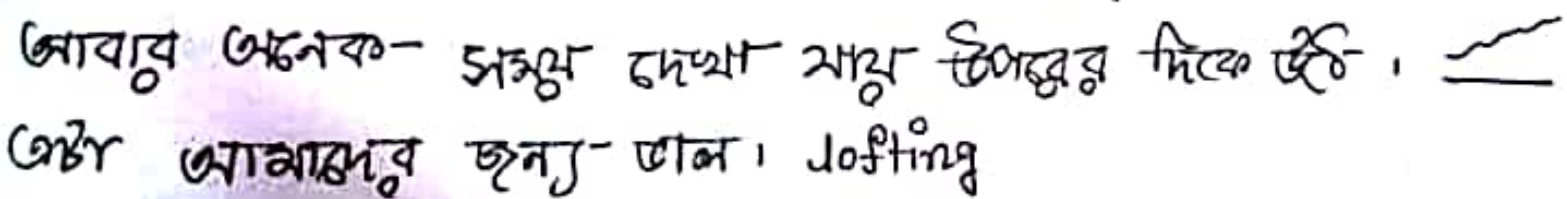 আবার অনেক সময় দেখা যায় উপরের দিকে উঠে ।
এটা আমাদের জন্য ভাল । lofting